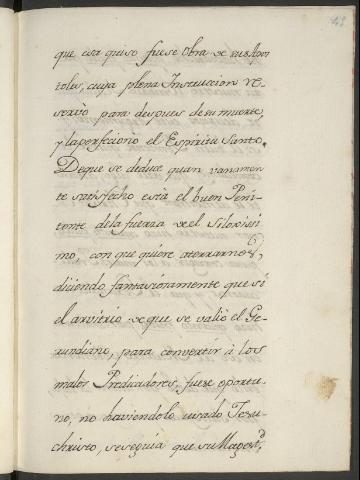 que esa quiso fuese Obra de sus Apos
toles, cuya plena Instruccion re-
servò para despues de su muerte,
y la perfecionò el Espiritu Santo.
De que se deduce quan vanamen
te satisfecho està el buen Peni
tente de la fuerza de el Siloxissi
mo, con que quiere aterrarnos,
diciendo fantasionamente que si
el arvitrio de que se valiò el Ge-
rundiano, para convertir à los
malos Predicadores, fuese oportu-
no, no haviendolo usado Jesu
christo, se seguia que su Magest.d